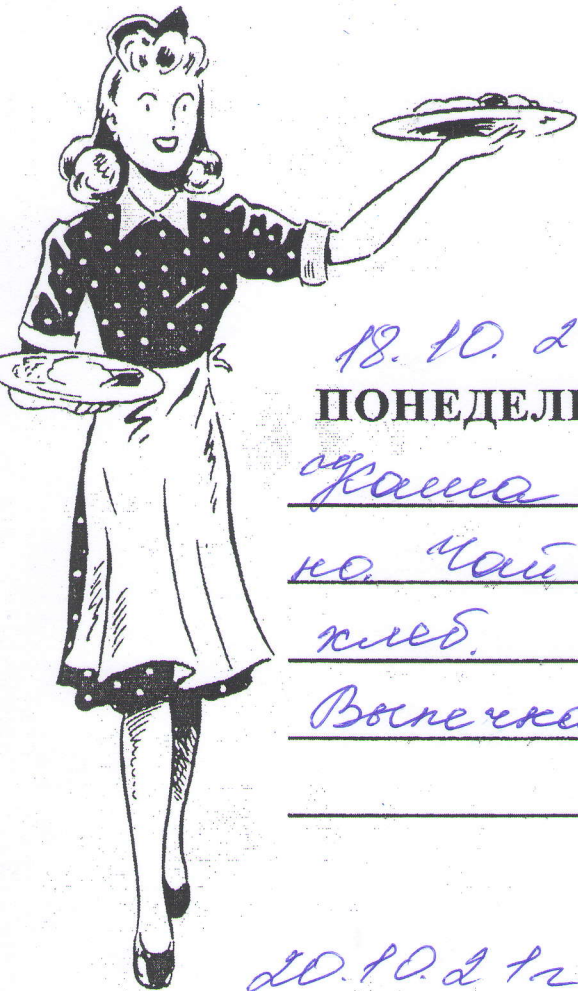 18. 10. 2
ПОНЕДЕЛЬ
Каша
на Чай
хлеб.
Выпечка
20.10.21г